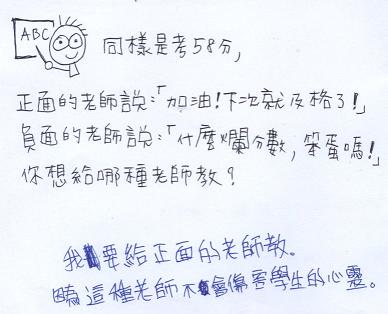 ABC
同樣是考58分,
正面的老師說:「加油!下次就及格了!」
負面的老師說:「什麼爛分數, 笨蛋嗎!」
你想給哪種老師教?
我要給正面的老師教。
因為這種老師不會傷害學生的心靈。